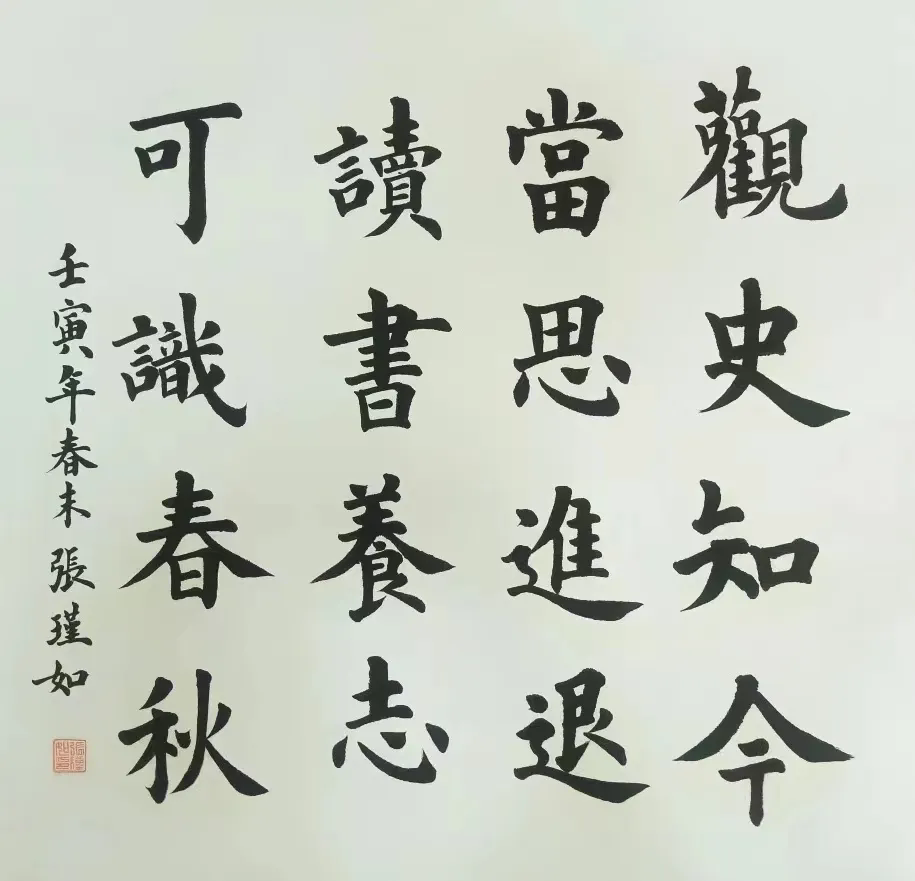 觀史知今
當思進退
讀書養志
可識春秋
壬寅年春末張瑾如